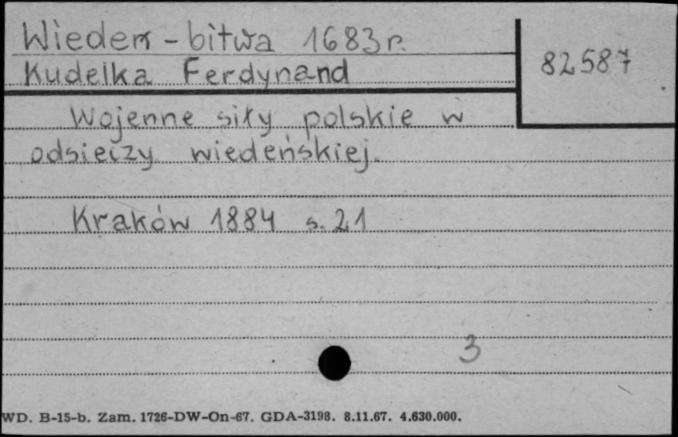 Wiedeń - bitwa 1683 r.
82587
Kudelka Ferdynand
Wojenne siły polskie w
odsieczy wiedeńskiej.
Kraków 1884 s. 21
3
WD. B-15-b. Zam. 1726-DW-On-67. GDA-3198. 8.11.67. 4.630.000.